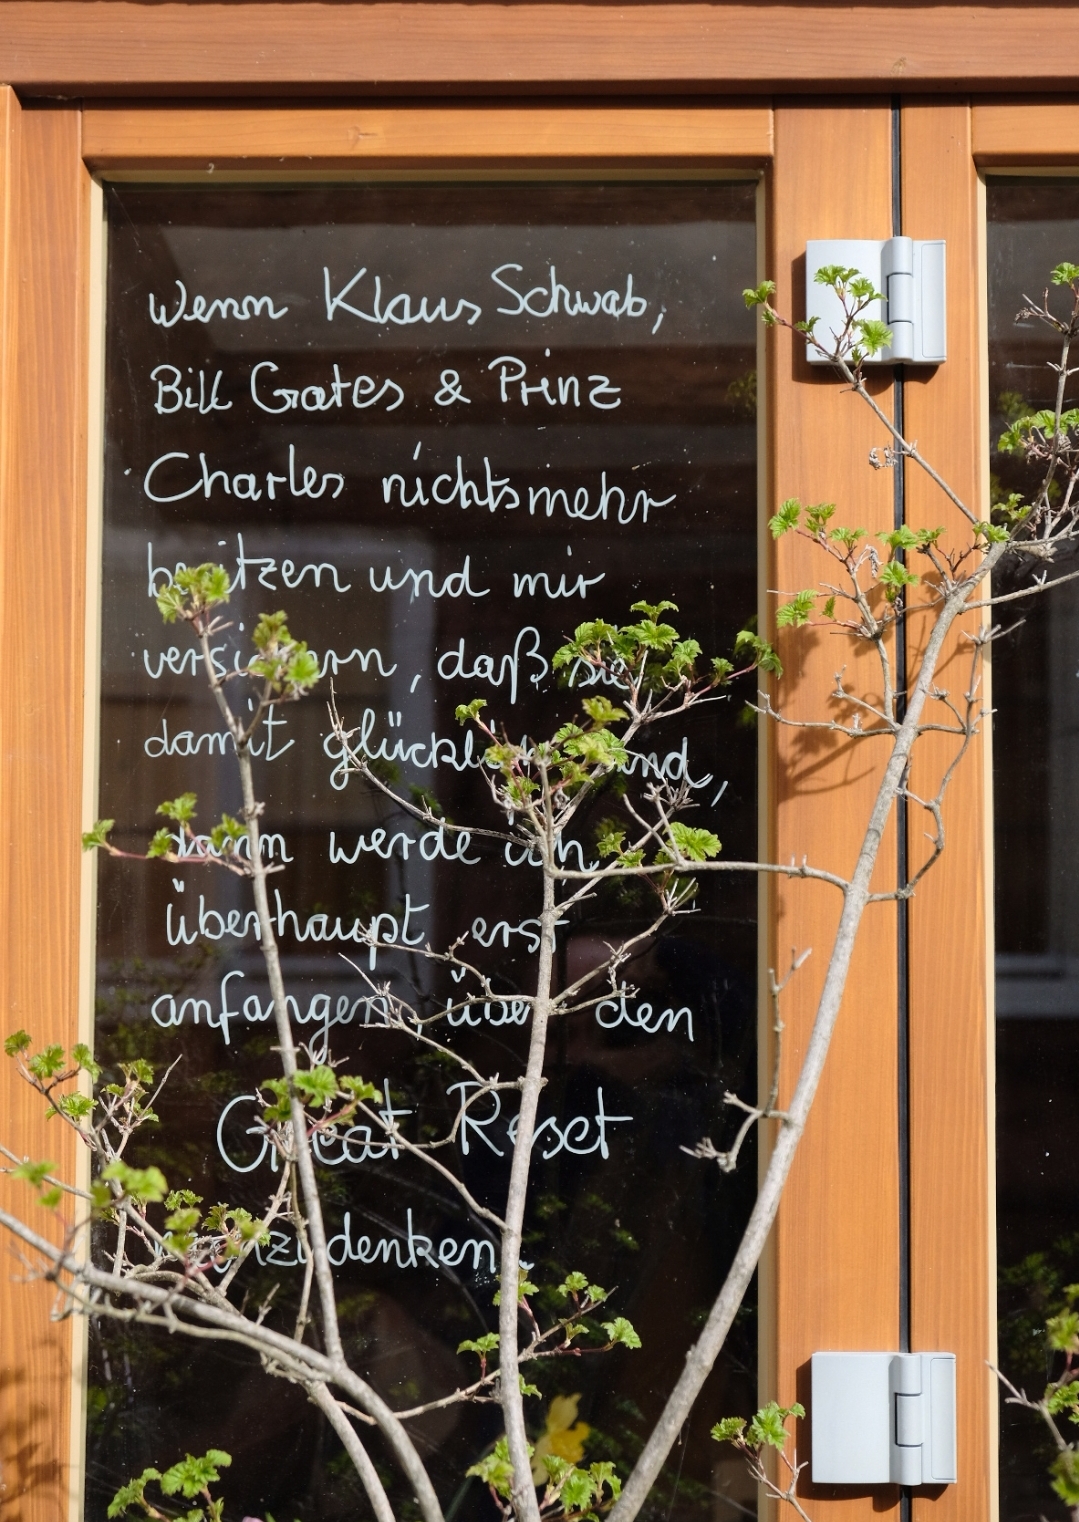 Wenn Klaus Schwab,
Bill Gates & Prinz
Charles nichts mehr
besitzen und mir
versichern, daß sie
damit glücklich sind,
dann werde ich
überhaupt erst
anfangen, über den
Great Reset
denken.